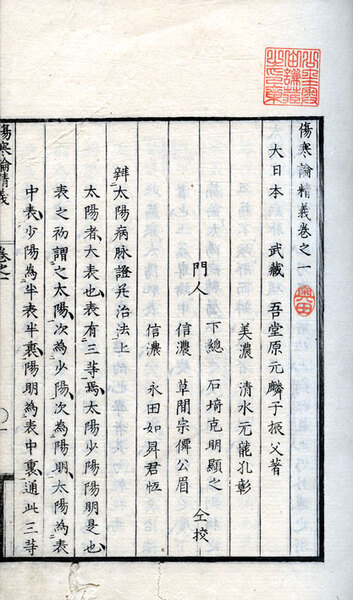 傷寒論精義卷之一
大日本 武藏 吾堂原元麟子振父著
美濃 清水元龍孔彰
下總 石埼克明顯之
門人 仝校
信濃 草間宗俾公眉
信濃 永田如昇君恆
辨太陽病脉證并治法上
太陽者大表也表有三等焉太陽少陽陽明是也
表之初謂之太陽次為少陽次為陽明太陽為表
中表少陽為半表半裏陽明為表中裏通此三等
傷寒論精義
卷之一